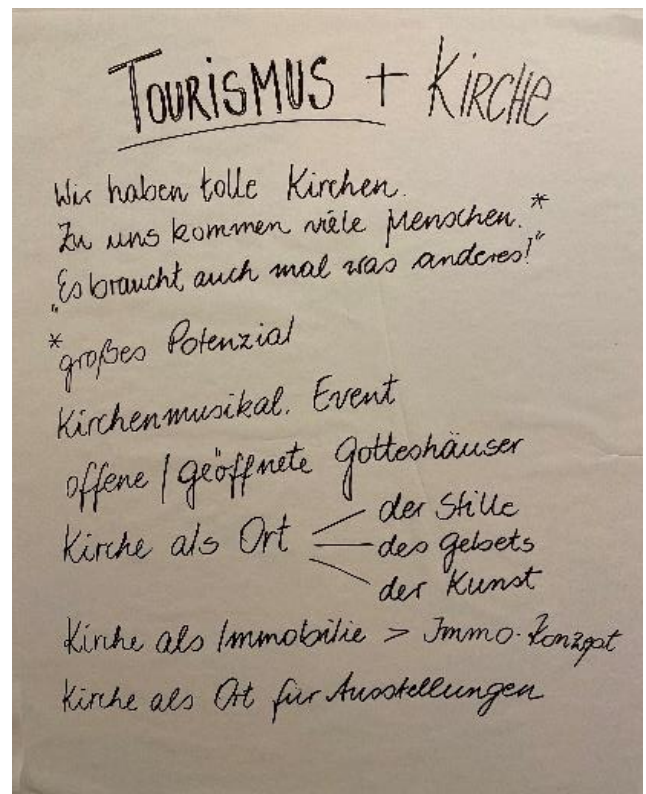 TOURISMUS + KIRCHE
Wir haben tolle Kirchen.
Zu uns kommen viele Menschen.*
"Es braucht auch mal was anderes!"
*großes Potenzial
Kirchenmusikal. Event
offene / geöffnete Gotteshäuser
der Stille
Kirche als Ort des Gebets
der Kunst
Kirche als Immobilie > Immo-Konzept
Kirche als Ort für Ausstellungen